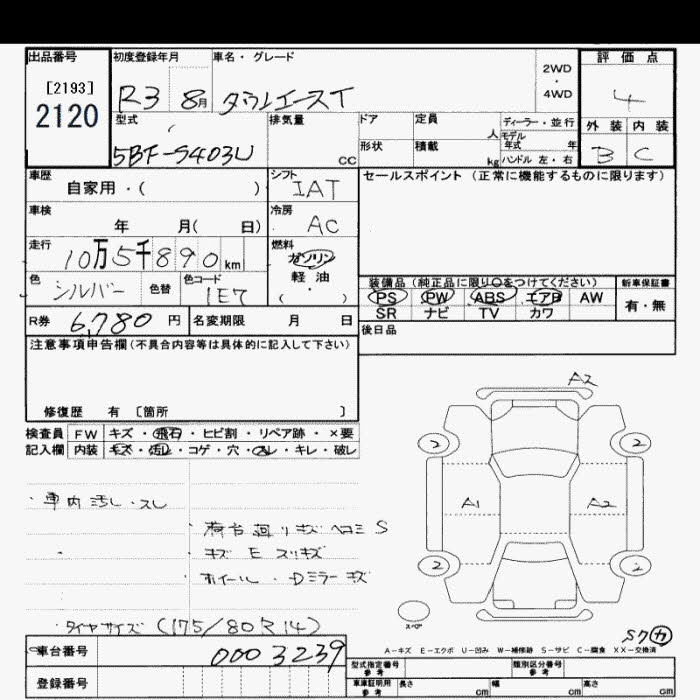 出品番号 初度登録年月 車名・グレード 評価点
[2193] 2WD
2120 R3 8月 タウンエースT ・4WD 4
型式 排気量 ドア 定員 人 ディーラー・並行 外装 内装
5BF-S403U CC 形状 積載 kg モデル年式 年 B C
ハンドル 左・右
車歴 シフト セールスポイント (正常に機能するものに限ります)
自家用・( ) IAT
車検 冷房
年 月( 日) AC
走行 燃料
10万5千890km ガソリン
色 色替 色コード 軽油
シルバー 1E7 ( ・ )
装備品 (純正品に限り○をつけてください) 新車保証書
PS PW ABS エアB AW 有・無
SR ナビ TV カワ
R券 6,780円 名変期限 月 日
後日品
注意事項申告欄(不具合内容等は具体的に記入して下さい)
修復歴 有 〔箇所 〕
検査員 FW キズ・飛石・ヒビ割・リペア跡・×要
記入欄 内装 キズ・汚レ・コゲ・穴・スレ・キレ・破レ
A2
2 2
A1 A2
2 2
・車内汚レ・スレ
・荷台廻リキズヘコミS
・キズ E スリキズ
・ホイール・Dミラーキズ
・タイヤサイズ (175/80R14)
スペア
S7 カ
A-キズ E-エクボ U-凹み W-補修跡 S-サビ C-腐食 XX-交換済
車台番号 0003239
登録番号
型式指定番号 参考 類別区分番号 参考
車庫証明用 参考 長さ cm 幅 cm 高さ cm